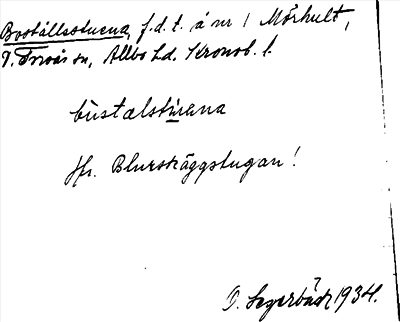 Boställsstuena, f.d.t. å nr 1 Mörhult,
V. Torsås sn, Allbo hd. Kronob. l.
bùstælstùena
Jfr. Blurskäggstugan!
D. Segerbäck 1934.